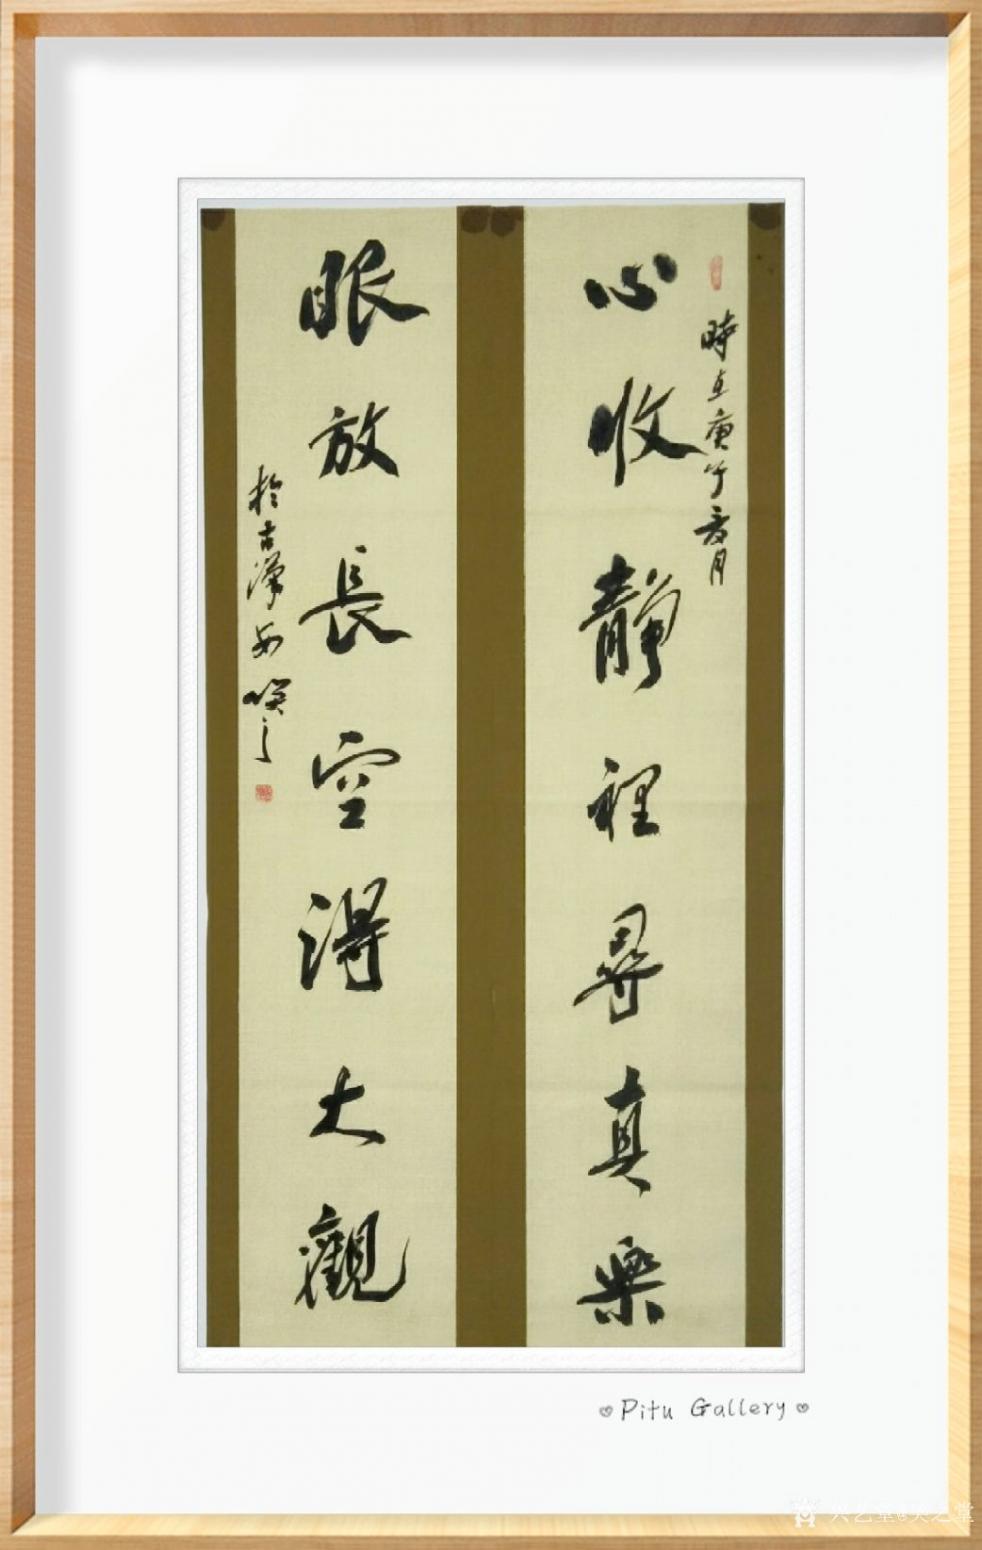 時在庚子夏月
心收靜裡尋真樂
眼放長空得大觀
於古漢安
Pitu Gallery
兴艺堂